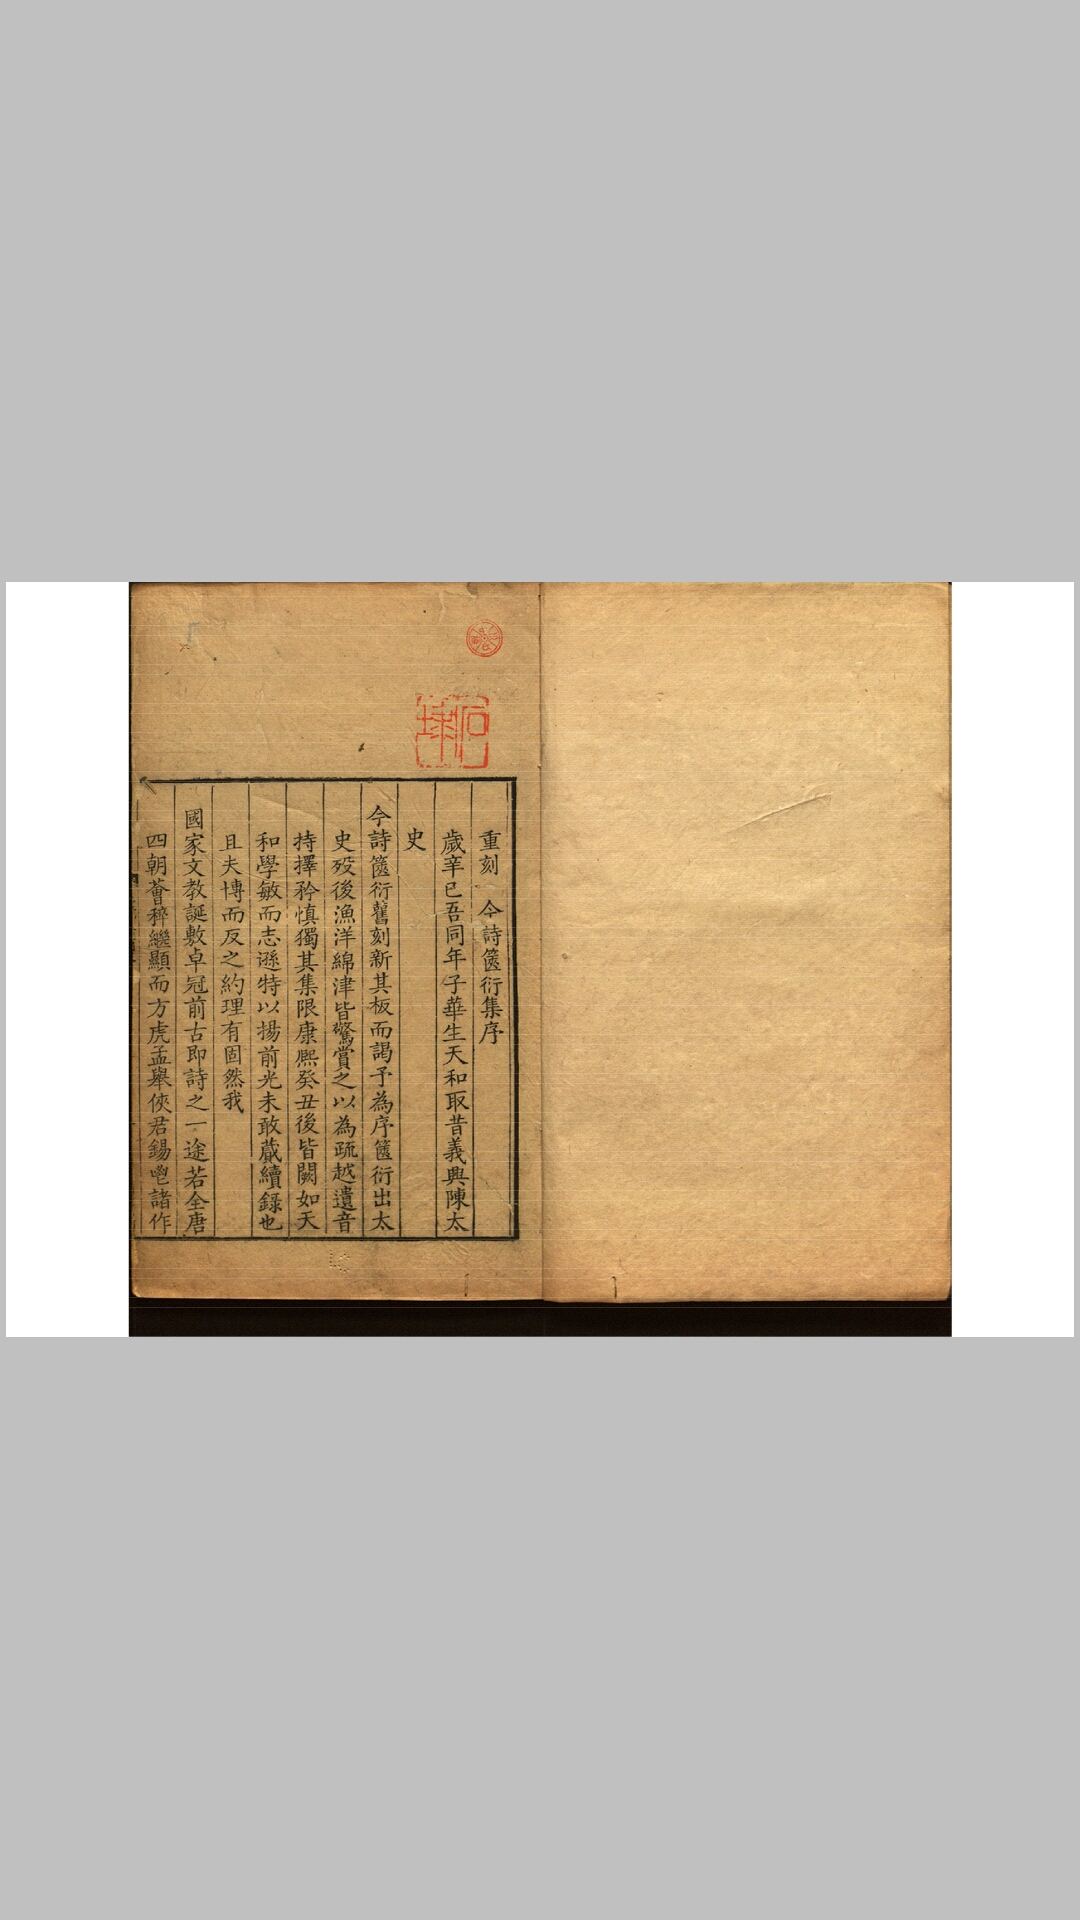 重刻 今詩篋衍集序
歲辛巳吾同年子華生天和取昔義興陳太
史
今詩篋衍舊刻新其板而謁予為序篋衍出太
史歿後漁洋綿津皆驚賞之以為疏越遺音
持擇矜慎獨其集限康熙癸丑後皆闕如天
和學敏而志遜特以揚前光未敢蕆續錄也
且夫博而反之約理有固然我
國家文教誕敷卓冠前古即詩之一途若全唐
四朝薈稡繼顯而方虎孟舉俠君錫鬯諸作